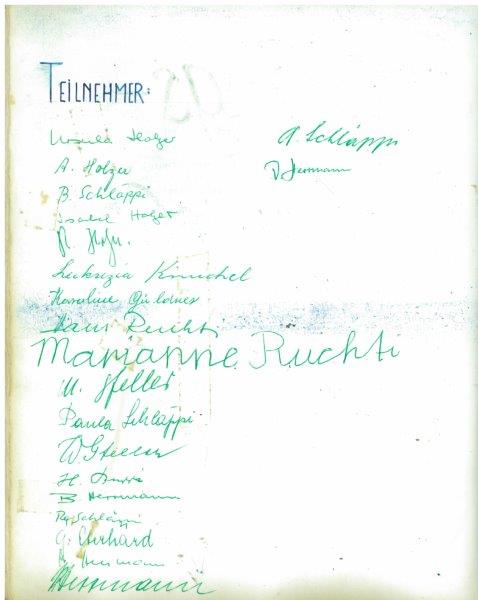 TEILNEHMER:
Ursula Holzer
A. Holzer
B. Schläppi
Isabel Holzer
Lukrezia Knuchel
Karoline
Hans Ruchti
Marianne Ruchti
U. Gfeller
Paula Schläppi
W Gfeller
H.
B. Herrmann
Schläppi
G. Eberhard
Herrmann
Herrmann
A. Schläppi
Herrmann